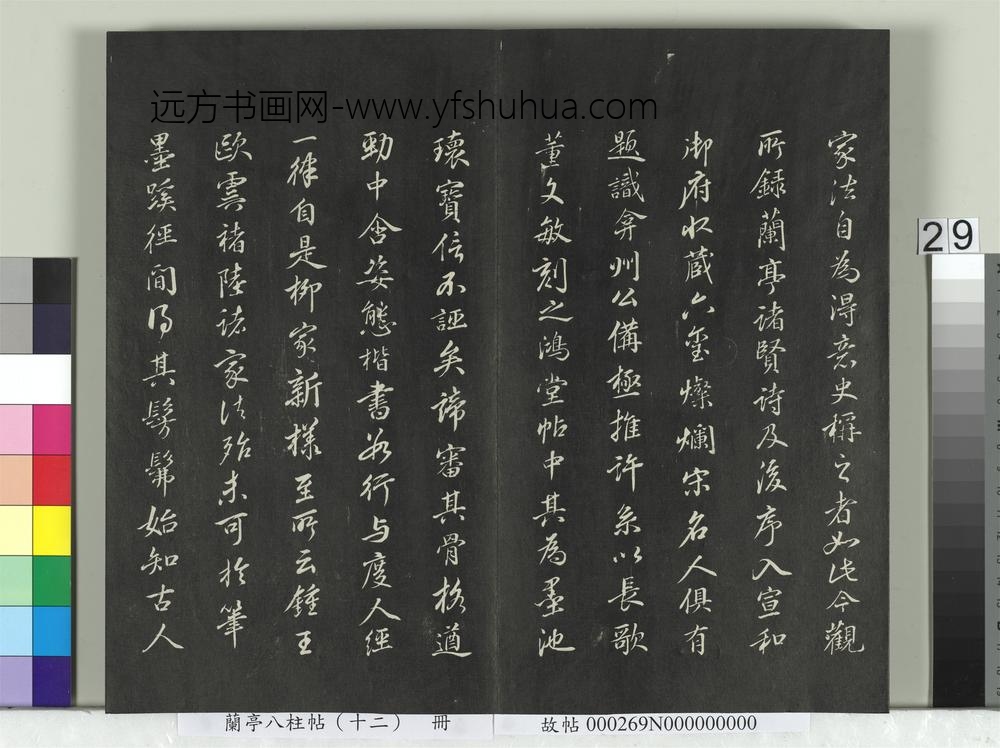 远方书画网-www.yfshuhua.com
家法自為得意史稱之者如此今觀
所錄蘭亭諸賢詩及後序入宣和
御府收蔵六璽燦爛宋名人俱有
題識弇州公備極推許系以長歌
董文敏刻之鴻堂帖中其為墨池
瓌寶信不誣矣諦審其骨格遒
勁中含姿態楷書如行与度人經
一律自是柳家新樣至所云鍾王
歐虞褚陸諸家法殆未可於筆
墨蹊徑間得其髣髴始知古人
29
蘭亭八柱帖（十二） 冊
故帖 000269N000000000